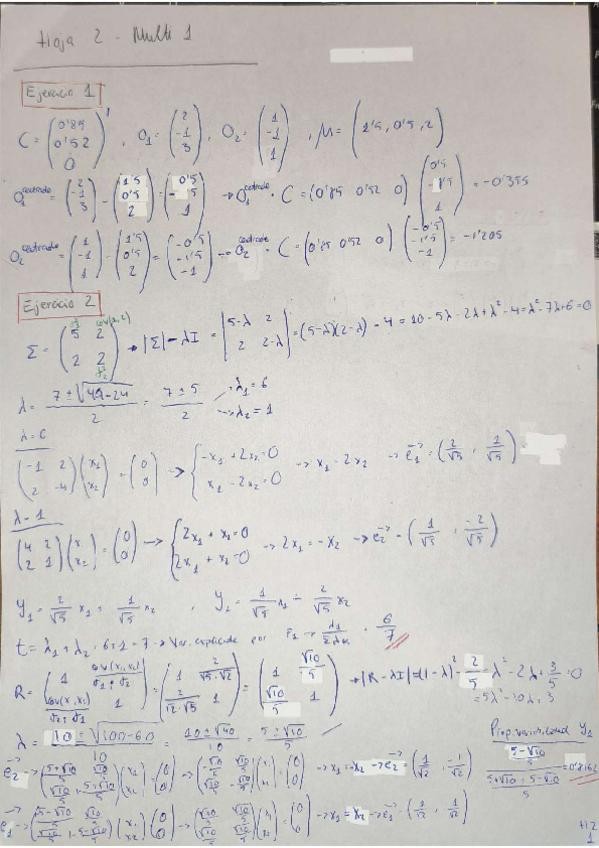 Hoja 2 - Multi 1
Ejercicio 1
C = (0'85 0'52 0)' , O₁ = (2 -1 3) , O₂ = (1 -1 1) , μ = (1'5, 0'5, 2)
O₁ᶜᵉⁿᵗʳᵃᵈᵒ = (2 -1 3) - (1'5 0'5 2) = (0'5 5 1) → O₁ᶜᵉⁿᵗʳᵃᵈᵒ · C = (0'85 0'52 0) (0'5 1'5 1) = -0'355
O₂ᶜᵉⁿᵗʳᵃᵈᵒ = (1 -1 1) - (1'5 0'5 2) = (-0'5 -1'5 -1) → O₂ᶜᵉⁿᵗʳᵃᵈᵒ · C = (0'85 0'52 0) (-0'5 -1'5 -1) = -1'205
Ejercicio 2
Σ = (5 2 2 2) → |Σ| - λI = |5-λ 2 2 2-λ| = (5-λ)(2-λ) - 4 = 10 - 5λ - 2λ + λ² - 4 = λ² - 7λ + 6 = 0
λ = 7 ± √49-24 / 2 = 7 ± 5 / 2 → λ₁ = 6 → λ₂ = 1
λ = 6
(-1 2 2 -4) (x₁ x₂) = (0 0) → {-x₁ + 2x₂ = 0 x₁ - 2x₂ = 0 → x₁ = 2x₂ → e₁ = (2/√5 , 1/√5)
λ = 1
(4 2 2 1) (x₁ x₂) = (0 0) → {2x₁ + x₂ = 0 2x₁ + x₂ = 0 → 2x₁ = -x₂ → e₂ = (1/√5 , -2/√5)
Y₁ = 2/√5 x₁ + 1/√5 x₂ , Y₂ = 1/√5 x₁ - 2/√5 x₂
t = λ₁ + λ₂ = 6 + 1 = 7 → Var. explicada por → λ₁ = 6/7
R = (1 cov(x₁,x₂)/σ₁·σ₂ cov(x₁,x₂)/σ₂·σ₁ 1) = (1 2/√5·√2 2/√2·√5 1) = (1 √10/5 √10/5 1) → |R - λI| = (1-λ)² - 2/5 = λ² - 2λ + 3/5 = 0
= 5λ² - 10λ + 3
λ = 10 ± √100-60 / 10 = 10 ± √40 / 10 = 5 ± √10 / 5
Prop. variabilidad Y₁
5-√10/5 / 5+√10+5-√10/5 = 0'8162
→ x₁ = -x₂ → e₂ = (1/√2 , -1/√2)
→ x₁ = x₂ → e₁ = (1/√2 , 1/√2)
H2
1